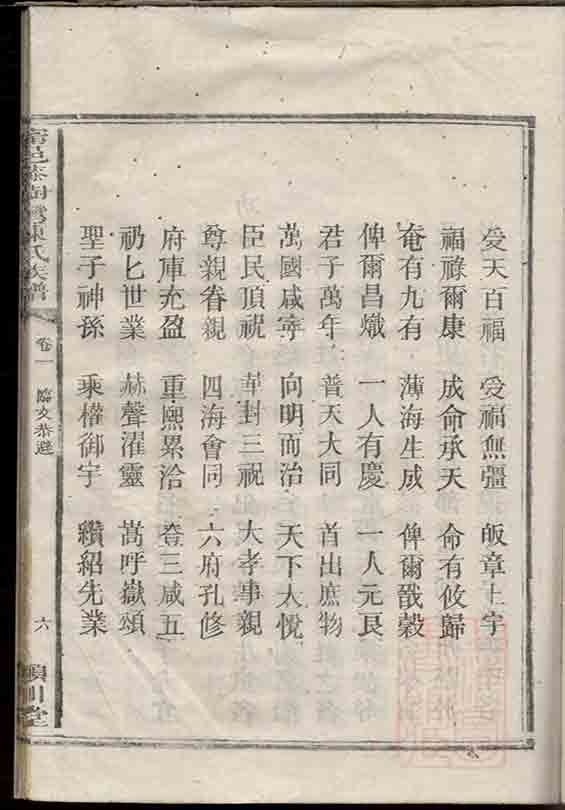 受天百福 受福無疆 皈章土宇
福祿爾康 成命承天 命有攸歸
奄有九有 薄海生成 俾爾戩穀
俾爾昌熾 一人有慶 一人元良
君子萬年 普天大同 首出庶物
萬國咸寧 向明而治 天下大悅
臣民頂祝 華封三祝 大孝事親
尊親眷親 四海會同 六府孔修
府庫充盈 重熙累洽 登三咸五
礽匕世業 赫聲濯靈 嵩呼嶽頌
聖子神孫 乘權御宇 纘紹先業
陳氏族譜 卷一 臨文恭避 六 潁川堂